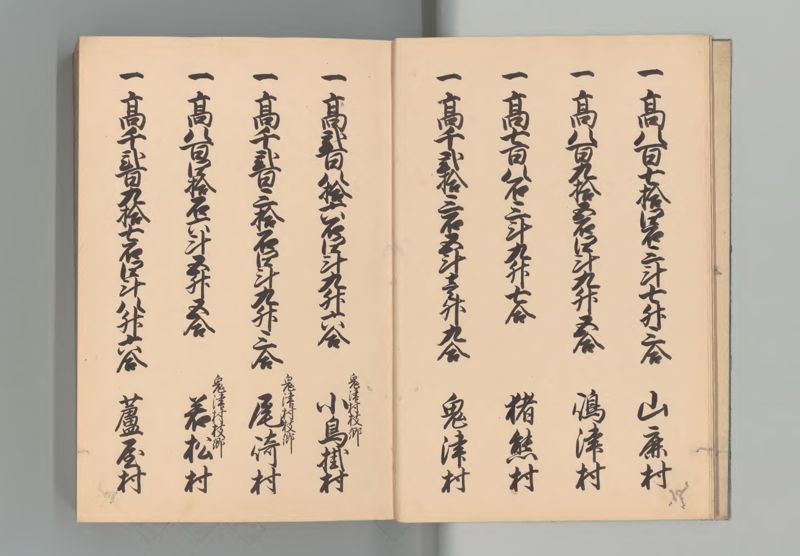 一 高八百七拾四石三斗七升三合 山鹿村
一 高八百九拾五石四斗九升五合 嶋津村
一 高七百八石三斗九升七合 猪熊村
一 高千弐拾三石五斗壱升九合 鬼津村
一 高弐百八拾六石四斗九升六合 鬼津村枝郷 小鳥掛村
一 高千弐百三拾石四斗九升三合 鬼津村枝郷 尾崎村
一 高八百四拾石六斗五升五合 鬼津村枝郷 若松村
一 高千弐百九拾七石四斗八升六合 蘆屋村